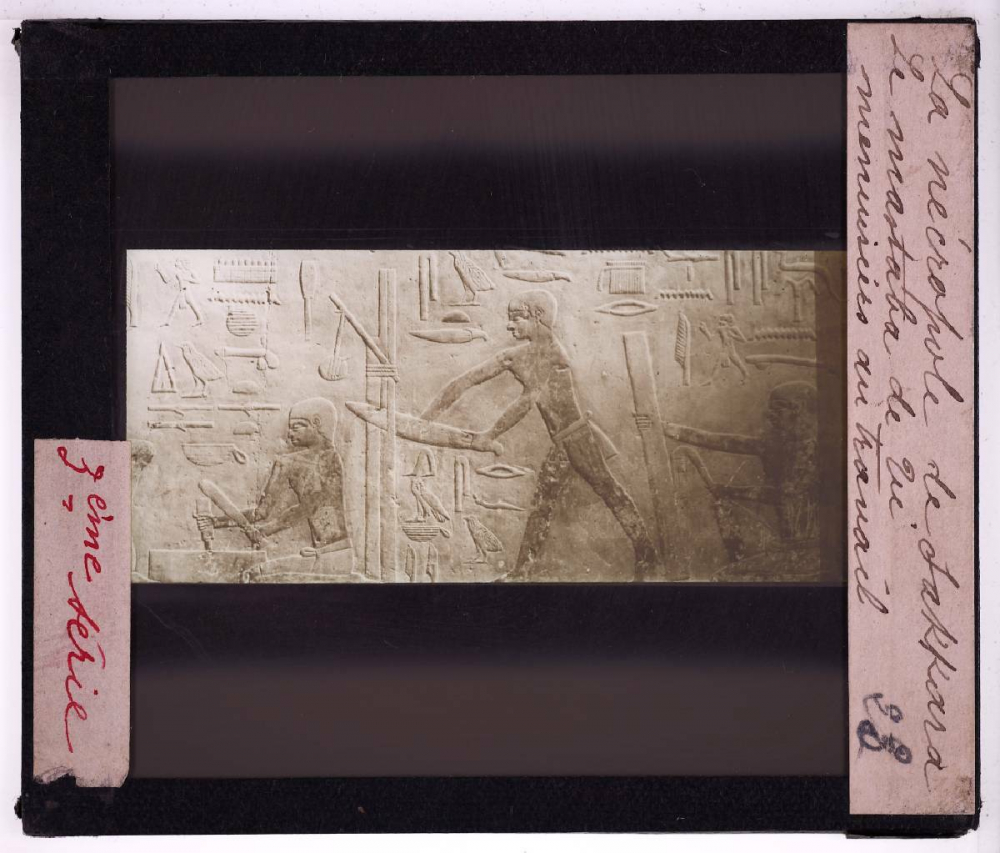 La nécropole de Sakkara
Le mastaba de Ti
menuisiers au travail
3ème série